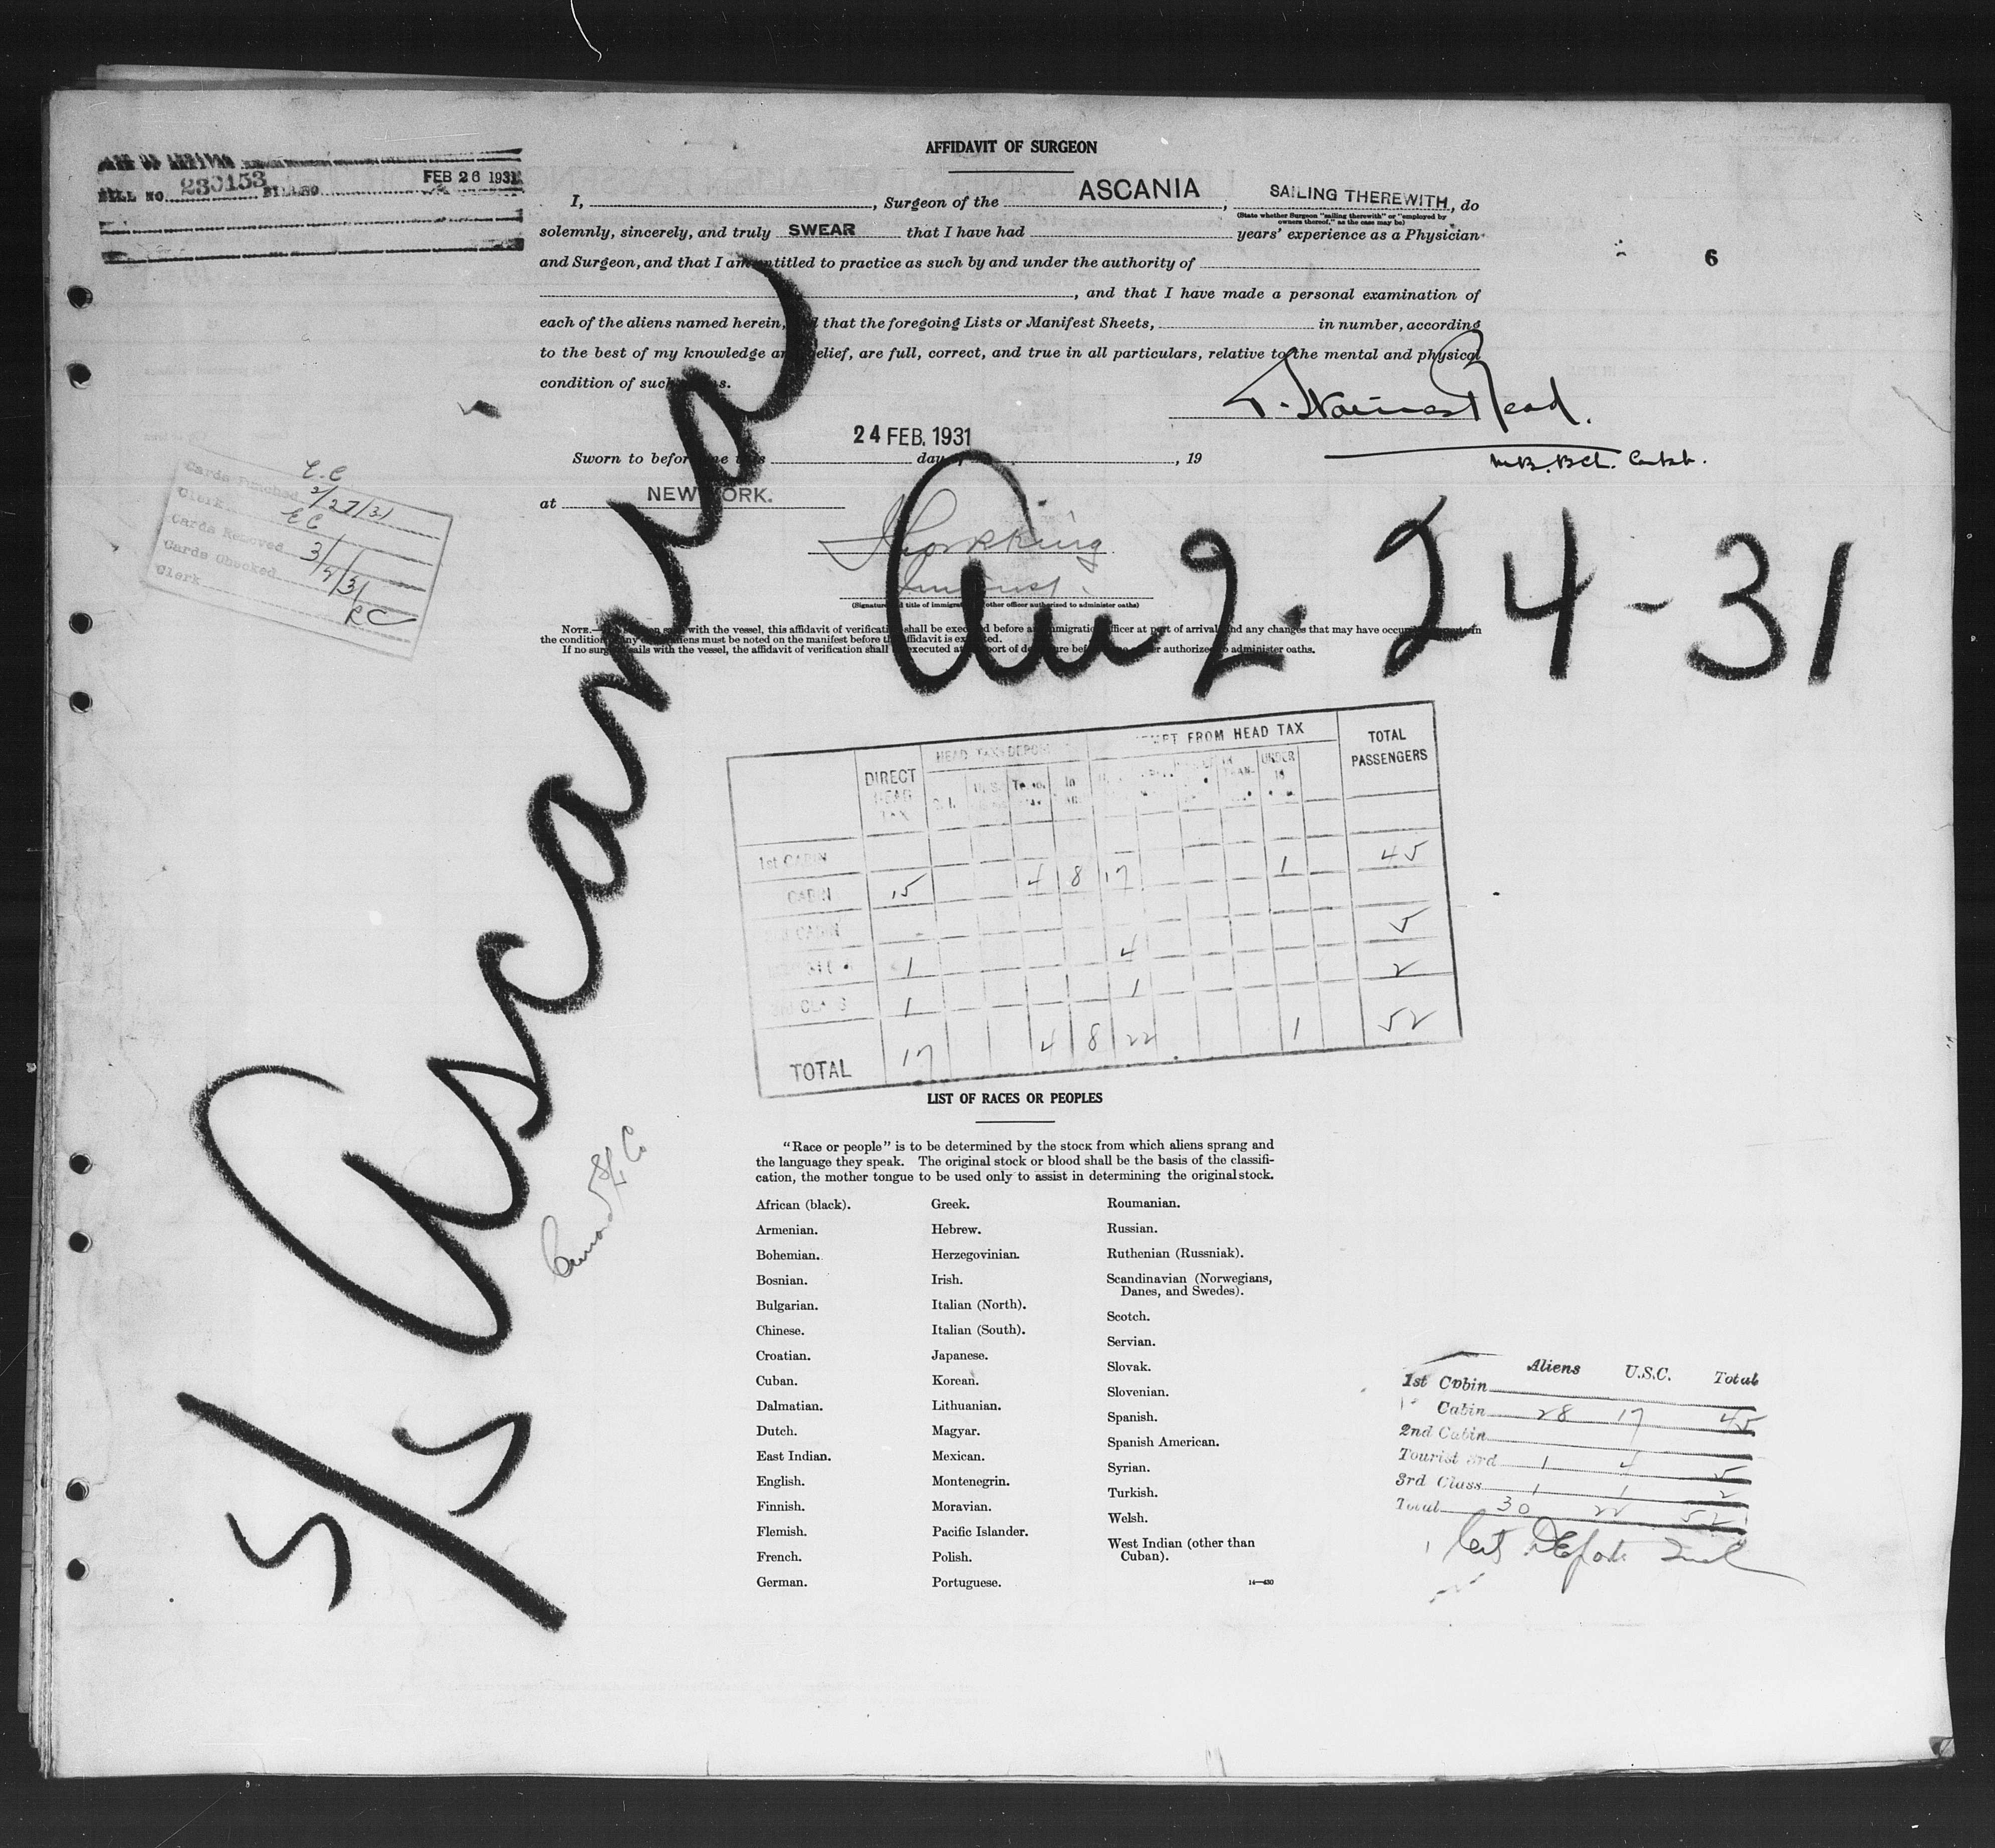 BILL NO. 230153 BILLED FEB 26 1931
AFFIDAVIT OF SURGEON
I, , Surgeon of the ASCANIA , SAILING THEREWITH, do
(State whether Surgeon "sailing therewith" or "employed by
owners thereof," as the case may be)
solemnly, sincerely, and truly SWEAR that I have had years' experience as a Physician
and Surgeon, and that I am entitled to practice as such by and under the authority of
, and that I have made a personal examination of
6
each of the aliens named herein, that the foregoing Lists or Manifest Sheets, in number, according
to the best of my knowledge and belief, are full, correct, and true in all particulars, relative to the mental and physical
condition of such
24 FEB. 1931
Sworn to before me this day of , 19
at NEW YORK.
(Signature and title of immigration or other officer authorized to administer oaths)
NOTE.— with the vessel, this affidavit of verification shall be executed before an immigration officer at port of arrival and any changes that may have occurred in
the condition of any aliens must be noted on the manifest before the affidavit is executed.
If no surgeon sails with the vessel, the affidavit of verification shall be executed at port of departure before officer authorized to administer oaths.
Cards Punched E.C 2/27/31
Clerk EC
Cards Removed
Cards Checked
Clerk RC
S/S Ascania
2-24-31
Cunard S/S Co
HEAD TAX DEPOSIT EXEMPT FROM HEAD TAX TOTAL PASSENGERS
DIRECT HEAD TAX UNDER 16
1st CABIN
CABIN 15 4 8 17 1 45
2nd CABIN
1 4 5
3rd CLASS 1 1 2
TOTAL 17 4 8 22 1 52
LIST OF RACES OR PEOPLES
"Race or people" is to be determined by the stock from which aliens sprang and
the language they speak. The original stock or blood shall be the basis of the classifi-
cation, the mother tongue to be used only to assist in determining the original stock.
African (black).
Armenian.
Bohemian.
Bosnian.
Bulgarian.
Chinese.
Croatian.
Cuban.
Dalmatian.
Dutch.
East Indian.
English.
Finnish.
Flemish.
French.
German.
Greek.
Hebrew.
Herzegovinian.
Irish.
Italian (North).
Italian (South).
Japanese.
Korean.
Lithuanian.
Magyar.
Mexican.
Montenegrin.
Moravian.
Pacific Islander.
Polish.
Portuguese.
Roumanian.
Russian.
Ruthenian (Russniak).
Scandinavian (Norwegians,
Danes, and Swedes).
Scotch.
Servian.
Slovak.
Slovenian.
Spanish.
Spanish American.
Syrian.
Turkish.
Welsh.
West Indian (other than
Cuban).
14—430
Aliens U.S.C. Total
1st Cabin
Cabin 28 17 45
2nd Cabin
Tourist 3rd 1 4 5
3rd Class 1 1 2
Total 30 22 52